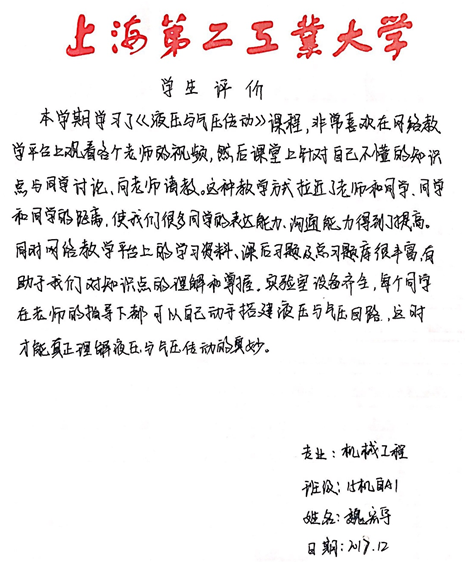 上海第二工业大学
学生评价
本学期学习了《液压与气压传动》课程,非常喜欢在网络教
学平台上观看各个老师的视频,然后课堂上针对自己不懂的知识
点与同学讨论、向老师请教。这种教学方式拉近了老师和同学、同学
和同学的距离,使我们很多同学的表达能力、沟通能力得到了提高。
同时网络教学平台上的学习资料、课后习题及总习题库很丰富,有
助于我们对知识点的理解和掌握。实验室设备齐全,每个同学
在老师的指导下都可以自己动手搭建液压与气压回路,这时
才能真正理解液压与气压传动的奥妙。
专业:机械工程
班级:15机自A1
姓名:魏宏
日期:2017.12